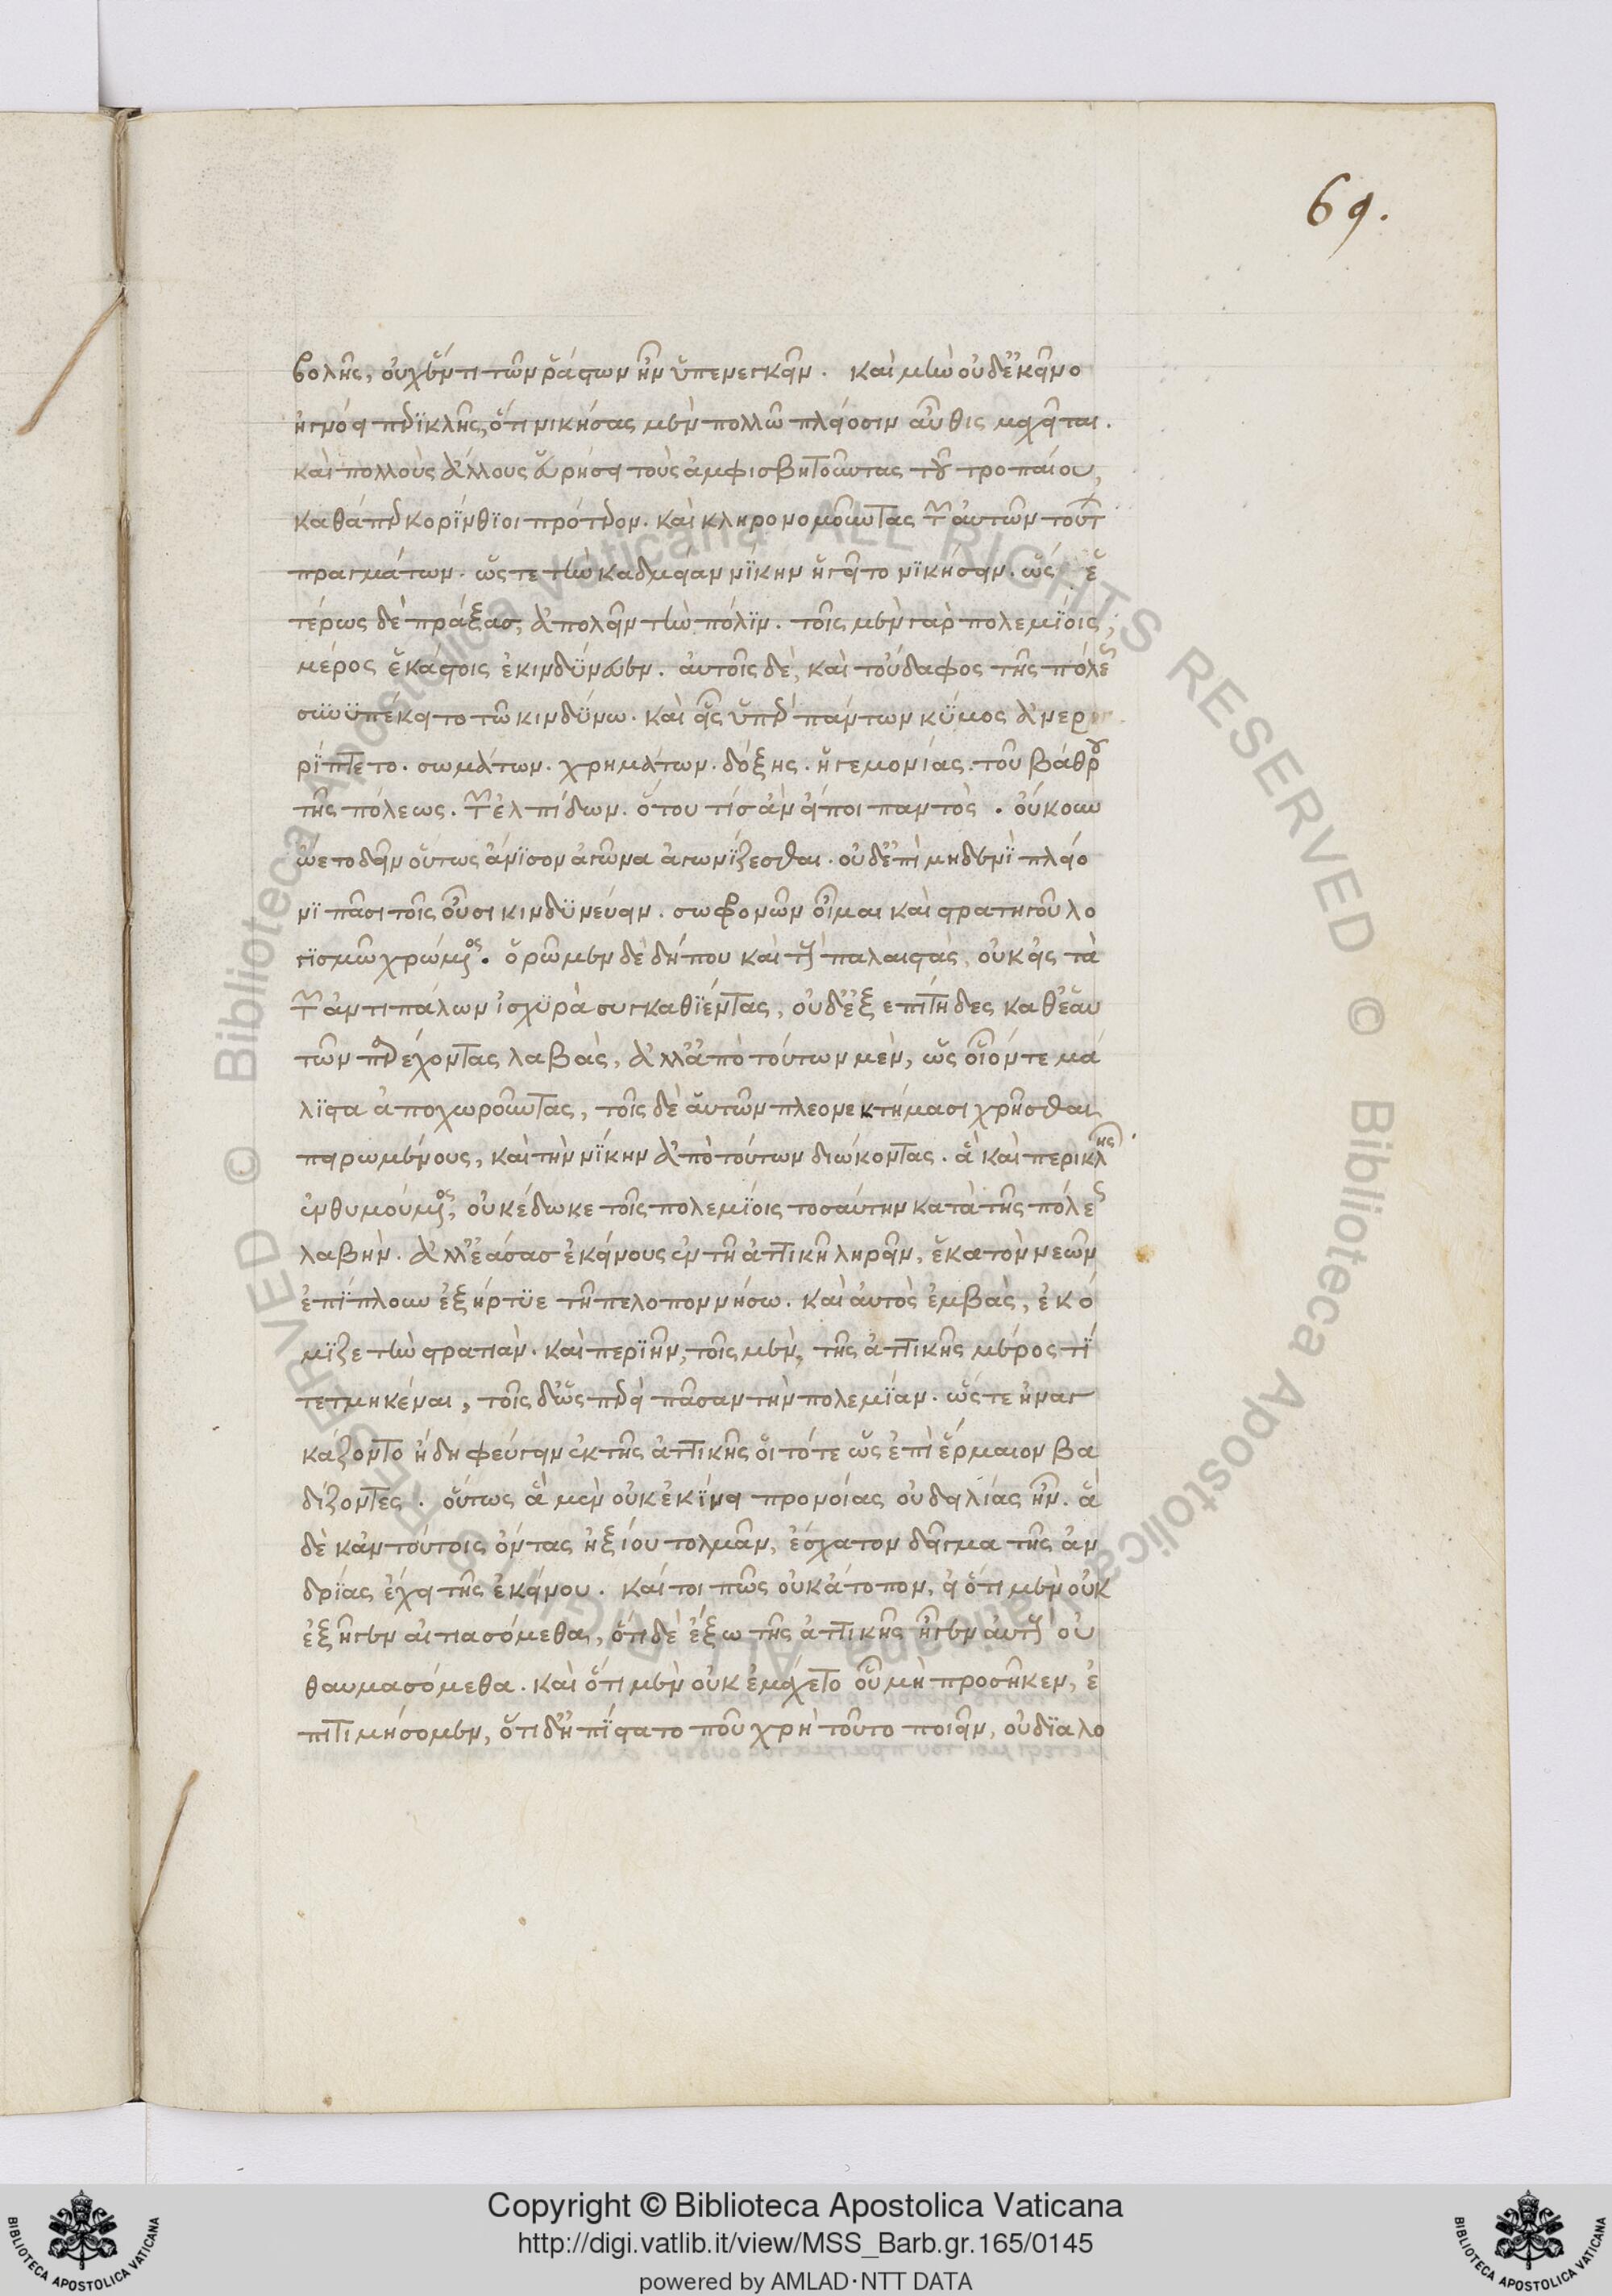 69.
βολῆς, οὐχ ἕν τι τῶν ῥάστων ἦν ὑπενεγκεῖν. καὶ μὴν οὐδ' ἐκεῖνο
ἠγνόει περικλῆς, ὅτι νικήσας μὲν πολλῷ πλείοσιν αὖθις μαχεῖται.
καὶ πολλοὺς ἄλλους εὑρήσει τοὺς ἀμφισβητοῦντας τοῦ τροπαίου,
καθάπερ κορίνθιοι πρότερον. καὶ κληρονομοῦντας τῶν αὐτῶν τούτ
πραγμάτων. ὥστε τὴν καδμείαν νίκην ἡγεῖτο νικήσειν. ὡς ἑ
τέρως δὲ πράξας, ἀπολεῖν τὴν πόλιν. τοῖς μὲν γὰρ πολεμίοις,
μέρος ἑκάστοις ἐκινδύνευεν. αὐτοῖς δὲ, καὶ τοὔδαφος τῆς πόλε
συνυπέκειτο τῷ κινδύνῳ. καὶ εἷς ὑπὲρ πάντων κύβος ἀνερ
ρίπτετο. σωμάτων. χρημάτων. δόξης. ἡγεμονίας. τοῦ βάθρου
τῆς πόλεως. τῶν ἐλπίδων. ὅτου τίς ἂν εἴποι παντὸς. οὔκουν
ᾤετο δεῖν οὕτως ἄνισον ἀγῶνα ἀγωνίζεσθαι. οὐδ' ἐπὶ μηδενὶ πλέο
νι πᾶσι τοῖς οὖσι κινδυνεύειν. σωφρονῶν οἶμαι καὶ στρατηγοῦ λο
γισμῷ χρώμενος. ὁρῶμεν δὲ δήπου καὶ τοὺς παλαιστὰς, οὐκ εἰς τὰ
τῶν ἀντιπάλων ἰσχυρὰ συγκαθιέντας, οὐδ' ἐξεπίτηδες καθ' ἑαυ
τῶν παρέχοντας λαβὰς, ἀλλ' ἀπὸ τούτων μὲν, ὡς οἷόν τε μά
λιστα ἀποχωροῦντας, τοῖς δὲ αὑτῶν πλεονεκτήμασι χρῆσθαι
πειρωμένους, καὶ τὴν νίκην ἀπὸ τούτων διώκοντας. ἃ καὶ περικλῆς
ἐνθυμούμενος, οὐκ ἔδωκε τοῖς πολεμίοις τοσαύτην κατὰ τῆς πόλες
λαβήν. ἀλλ' ἐάσας ἐκείνους ἐν τῇ ἀττικῇ ληρεῖν, ἑκατὸν νεῶν
ἐπίπλουν ἐξήρτυε τῇ πελοποννήσῳ. καὶ αὐτὸς ἐμβὰς, ἐκό
μιζε τὴν στρατιάν. καὶ περιῆν, τοῖς μὲν, τῆς ἀττικῆς μέρος τί
τετμηκέναι, τοῖς δ' ὥσπερεὶ πᾶσαν τὴν πολεμίαν. ὥστε ἠναγ
κάζοντο ἤδη φεύγειν ἐκ τῆς ἀττικῆς οἱ τότε ὡς ἐπὶ ἕρμαιον βα
δίζοντες. οὕτως ἃ μὲν οὐκ ἐκίνει προνοίας οὐ δειλίας ἦν. ἃ
δὲ κἀν τούτοις ὄντας ἠξίου τολμᾶν, ἔσχατον δεῖγμα τῆς ἀν
δρίας ἔχει τῆς ἐκείνου. καίτοι πῶς οὐκ ἄτοπον, εἰ ὅτι μὲν οὐκ
ἐξῆγεν αἰτιασόμεθα, ὅτι δὲ ἔξω τῆς ἀττικῆς ἦγεν αὐτοὺς οὐ
θαυμασόμεθα. καὶ ὅτι μὲν οὐκ ἐμάχετο οὗ μὴ προσῆκεν, ἐ
πιτιμήσομεν, ὅτι δ' ἠπίστατο ποῦ χρὴ τοῦτο ποιεῖν, οὐ διαλο
© Biblioteca Apostolica Vaticana ALL RIGHTS RESERVED
Copyright © Biblioteca Apostolica Vaticana
http://digi.vatlib.it/view/MSS_Barb.gr.165/0145
powered by AMLAD·NTT DATA
BIBLIOTECA APOSTOLICA VATICANA
BIBLIOTECA APOSTOLICA VATICANA